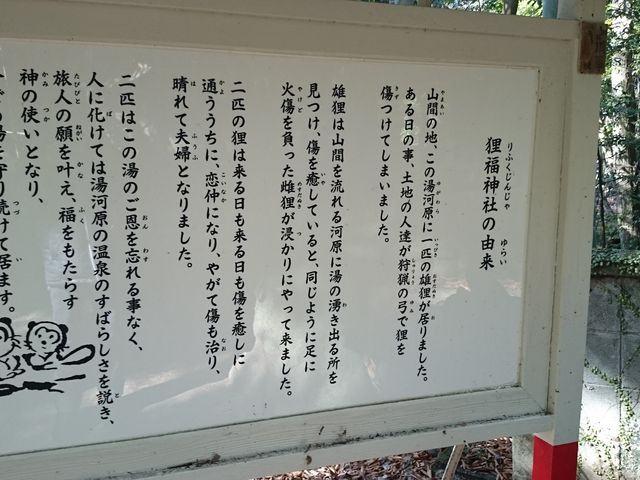 狸福神社の由来
りふくじんじゃ ゆらい
山間の地、この湯河原に一匹の雄狸が居りました。
ある日の事、土地の人達が狩猟の弓で狸を
傷つけてしまいました。
雄狸は山間を流れる河原に湯の湧き出る所を
見つけ、傷を癒していると、同じように足に
火傷を負った雌狸が浸かりにやって来ました。
二匹の狸は来る日も来る日も傷を癒しに
通ううちに、恋仲になり、やがて傷も治り、
晴れて夫婦となりました。
二匹はこの湯のご恩を忘れる事なく、
人に化けては湯河原の温泉のすばらしさを説き、
旅人の願を叶え、福をもたらす
神の使いとなり、
守り続けて居ます。